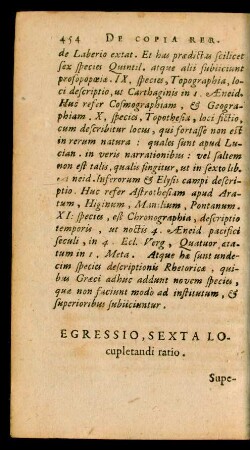 454 DE COPIA RER.
de Laberio extat. Et has prædictas scilicet
sex species Quintil. atque alii subiiciunt
prosopopœiæ. IX, species, Topographia, lo-
ci descriptio, ut Carthaginis in 1. Æneid.
Huc refer Cosmographiam, & Geogra-
phiam. X, species, Topothesia, loci fictio,
cum describitur locus, qui fortasse non est
in rerum natura: quales sunt apud Lu-
cian. in veris narrationibus: vel saltem
non est talis, qualis fingitur, ut in sexto lib.
Æneid. Inferorum & Elysii campi descri-
ptio. Huc refer Astrothesiam apud Ara-
tum, Higinum, Manilium, Pontanum.
XI: species, est Chronographia, descriptio
temporis, ut noctis 4. Æneid pacifici
seculi, in 4. Ecl. Verg, Quatuor æta-
tum in 1. Meta. Atque hæ sunt unde-
cim species descriptionis Rhetoricæ, qui-
bus Græci adhuc addunt novem species,
quæ non faciunt modo ad institutum, &
superioribus subiiciuntur.
EGRESSIO, SEXTA LO-
cupletandi ratio.
Supe-